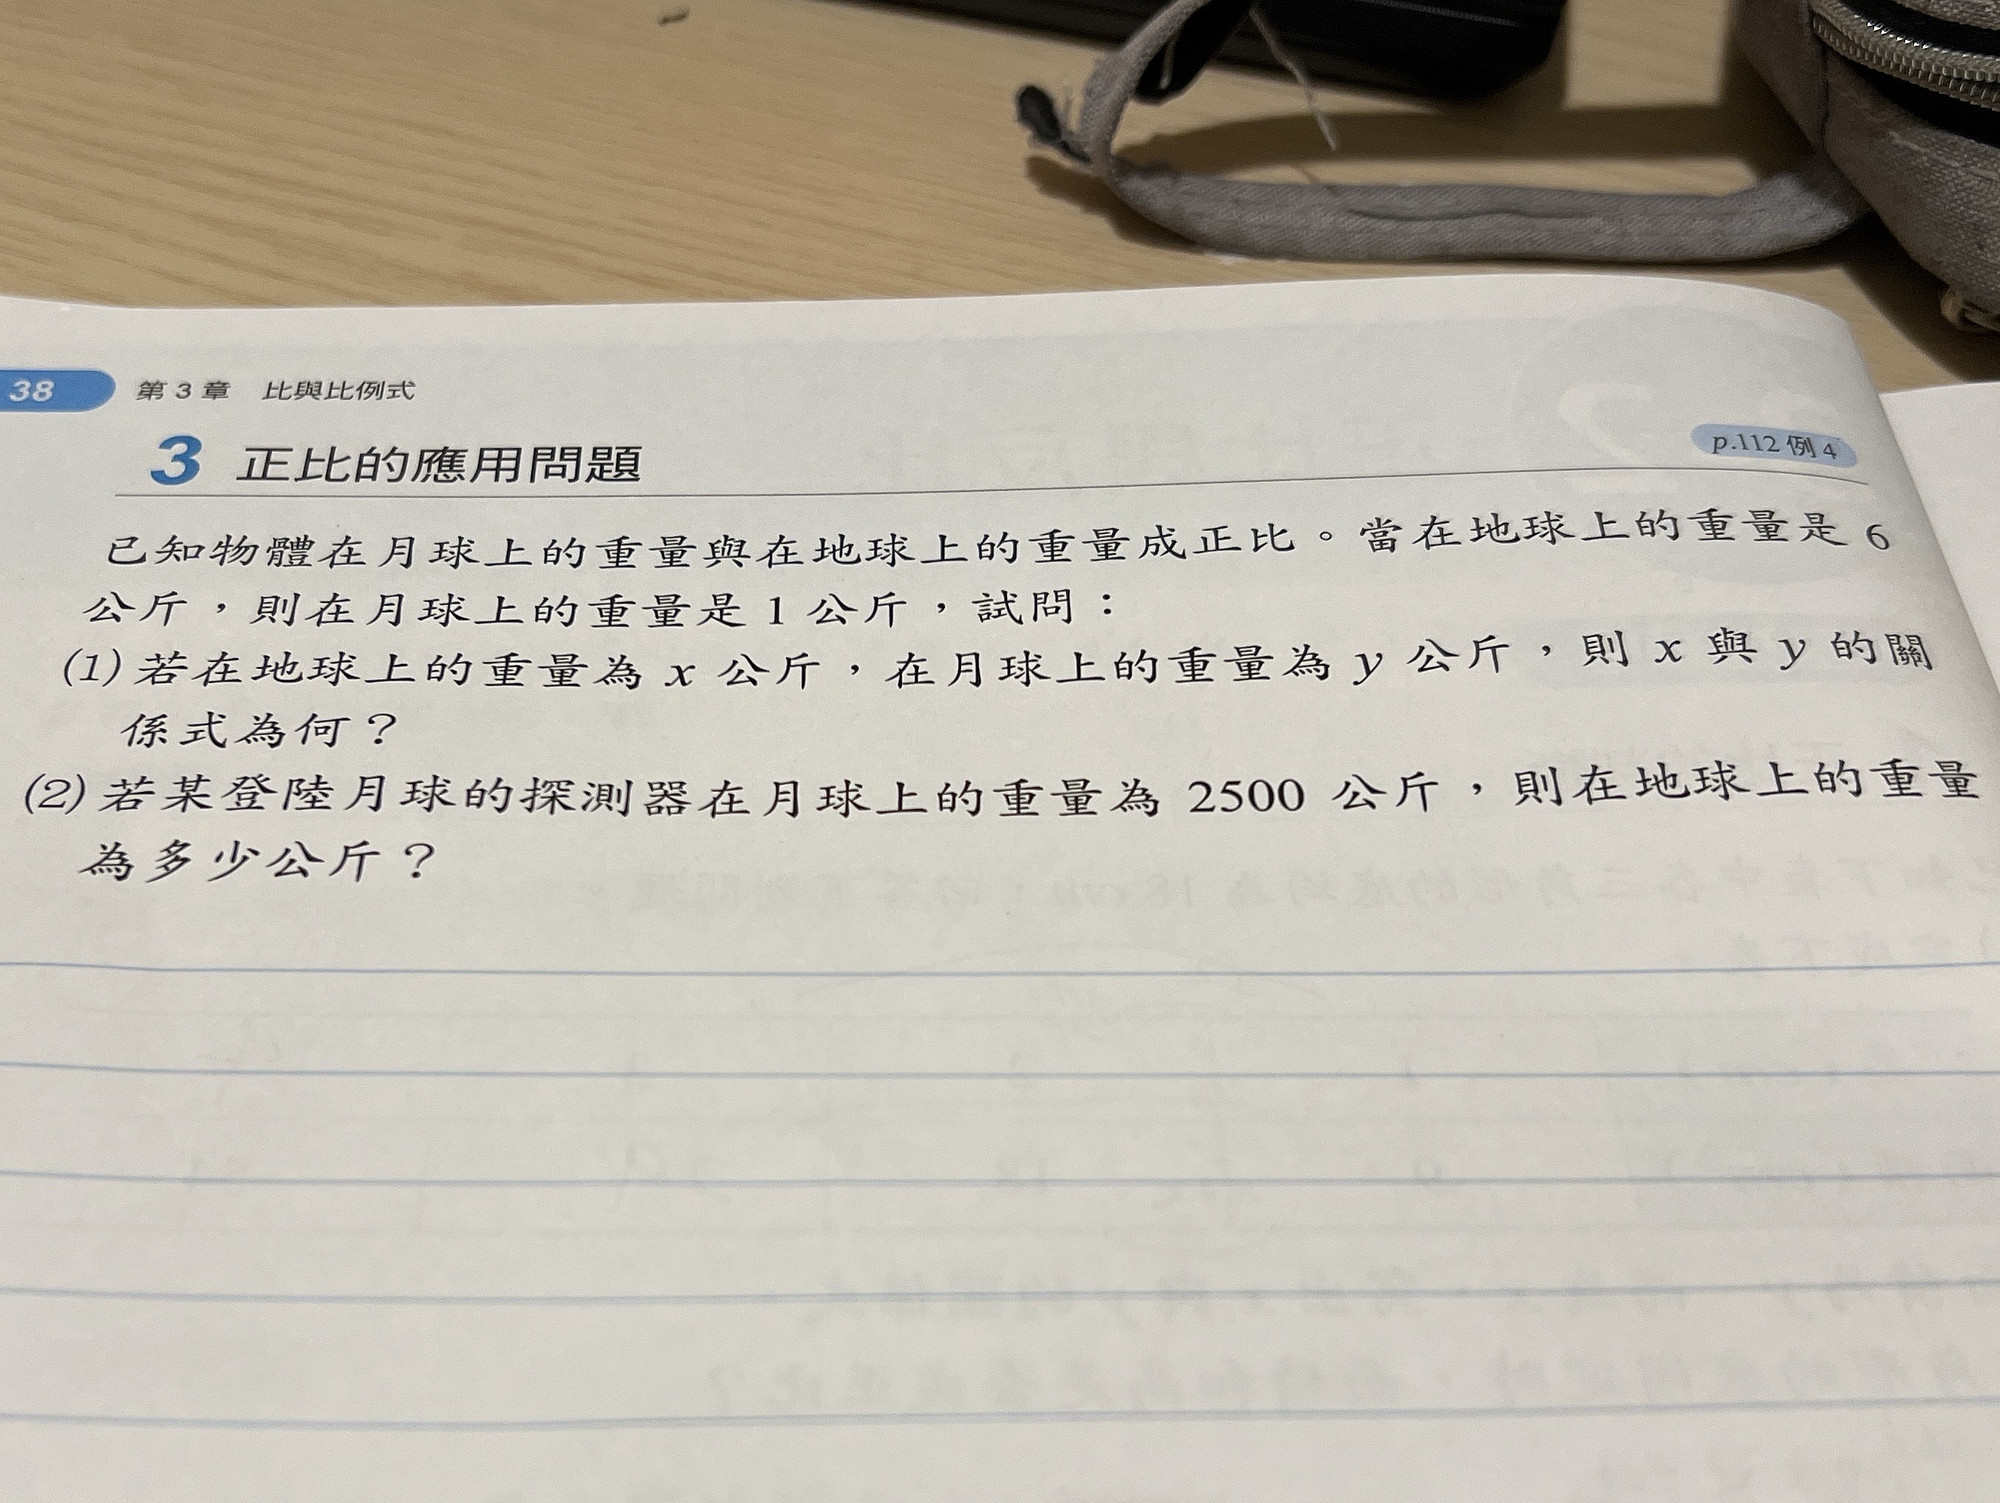 38 第 3 章 比與比例式
3 正比的應用問題
p.112 例 4
已知物體在月球上的重量與在地球上的重量成正比。當在地球上的重量是 6
公斤，則在月球上的重量是 1 公斤，試問：
(1) 若在地球上的重量為 x 公斤，在月球上的重量為 y 公斤，則 x 與 y 的關
係式為何？
(2) 若某登陸月球的探測器在月球上的重量為 2500 公斤，則在地球上的重量
為多少公斤？